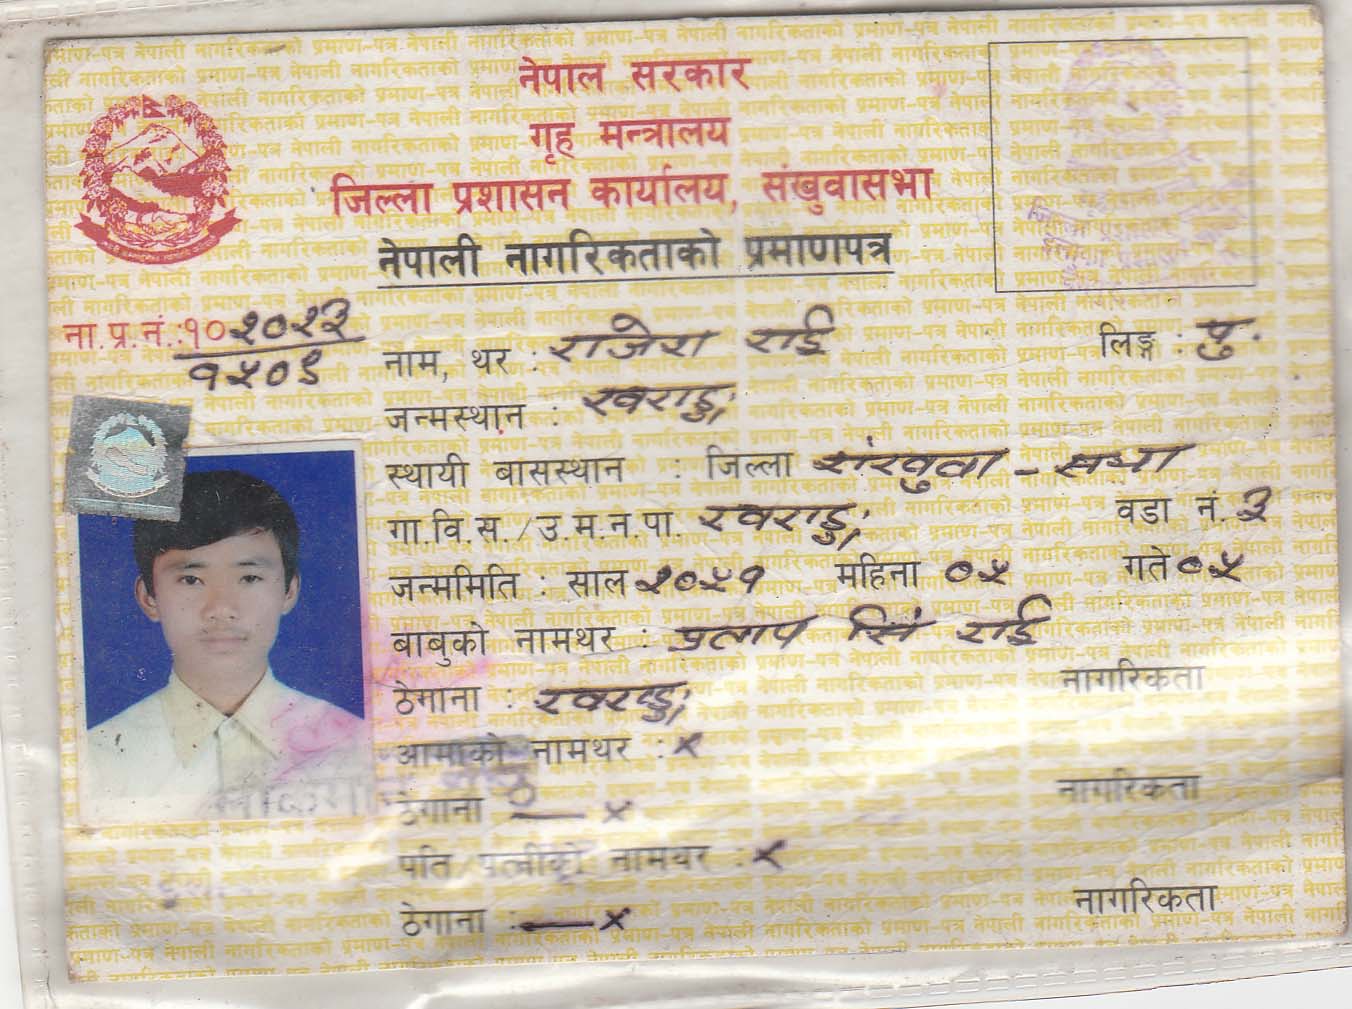 नेपाल सरकार
गृह मन्त्रालय
जिल्ला प्रशासन कार्यालय, संखुवासभा
नेपाली नागरिकताको प्रमाणपत्र
ना.प्र.नं.:१०२०२३
१५०९
नाम, थर : राजेश राई लिङ्ग : पु.
जन्मस्थान :
स्थायी बासस्थान : जिल्ला संखुवा - सभा
गा.वि.स./उ.म.न.पा. वडा नं. ३
जन्ममिति : साल २०५१ महिना ०५ गते ०५
बाबुको नामथर : प्रताप सिं राई
ठेगाना : नागरिकता
आमाको नामथर : x
ठेगाना — x नागरिकता
पति/पत्नीको नामथर : x
ठेगाना : — x नागरिकता